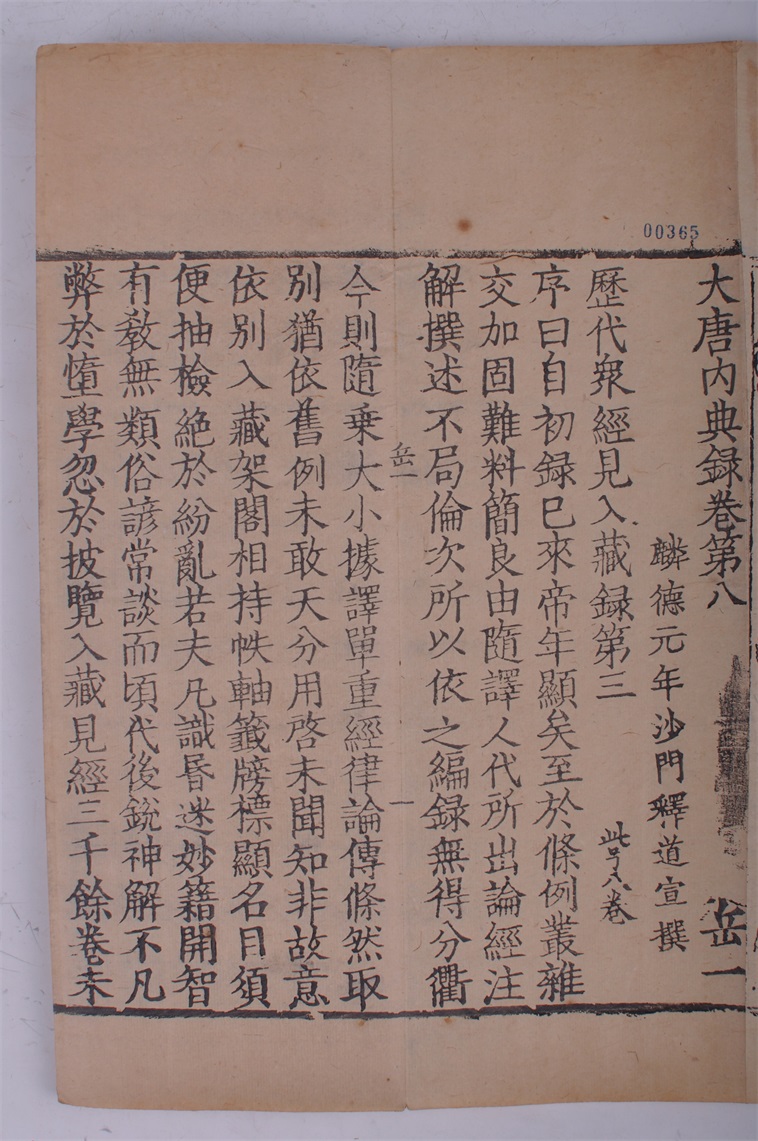 00365
大唐內典録卷第八 岳一
麟德元年沙門釋道宣撰
歷代衆經見入藏録第三
序曰自初録已來帝年顯矣至於條例叢雜
交加固難料簡良由隨譯人代所出論經注
解撰述不局倫次所以依之編録無得分衢
岳一 一
今則隨乗大小據譯單重經律論傳條然取
別猶依舊例未敢天分用啓未聞知非故意
依別入藏架閣相持帙軸籤牓標顯名目須
便抽檢絶於紛亂若夫凡識昏迷妙籍開智
有教無類俗諺常談而頃代後銳神解不凡
弊於墮學忽於披覽入藏見經三千餘卷未